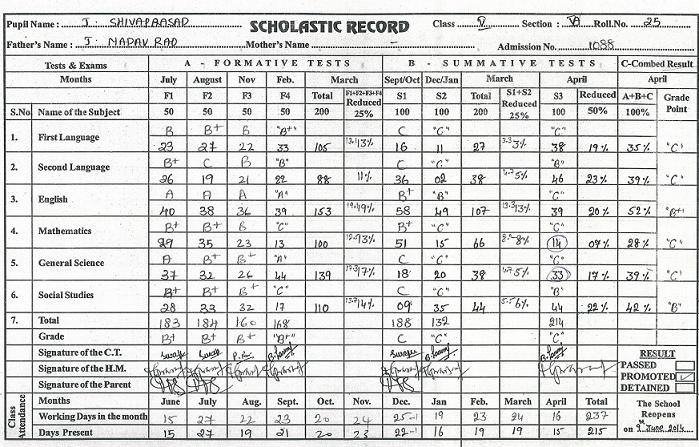 Pupil Name : J. SHIVAPRASAD SCHOLASTIC RECORD Class V Section : VA Roll.No. 25
Father's Name : J. MADAV RAO Mother's Name : - Admission No. 1088
Tests & Exams A - FORMATIVE TESTS B - SUMMATIVE TESTS C-Combed Result
Months July August Nov Feb. March Sept/Oct Dec/Jan March April April
F1 F2 F3 F4 Total F1+F2+F3+F4 Reduced 25% S1 S2 Total S1+S2 Reduced 25% S3 Reduced A+B+C Grade Point
S.No Name of the Subject 50 50 50 50 200 100 100 200 100 50% 100%
1. First Language B B+ B "B+" C "C" "C"
23 27 22 33 105 13% 16 11 27 3% 38 19% 35% "C"
2. Second Language B+ C B "B" C "C" "B"
26 19 21 22 88 11% 36 02 38 5% 46 23% 39% "C"
3. English A A A "A" B+ "B" "C"
40 38 36 39 153 19% 58 49 107 13% 39 20% 52% "B+"
4. Mathematics B+ B+ B "C" B+ "C" "C"
29 35 23 13 100 13% 51 15 66 8% 14 07% 28% "C"
5. General Science A B+ B+ "A" C "C" "C"
37 32 26 44 139 17% 18 20 38 5% 33 17% 39% "C"
6. Social Studies B+ B+ B+ "C" C "C" "B"
28 33 32 17 110 14% 09 35 44 6% 44 22% 42% "B"
7. Total 183 184 160 168 188 132 214
Grade B+ B+ B+ "B+" C "C" "C"
Signature of the C.T.
Signature of the H.M.
Signature of the Parent
RESULT
PASSED
PROMOTED ✓
DETAINED
Class Attendance
Months June July Aug. Sept. Oct. Nov. Dec. Jan. Feb. March April Total
Working Days in the month 15 27 22 23 20 24 25-1 19 23 24 16 237
Days Present 15 27 19 21 20 23 22-1 16 19 19 15 215
The School Reopens on June 2014